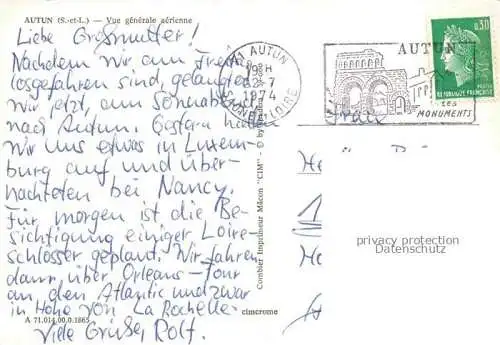 AUTUN (S.-et-L.) — Vue générale aérienne
Liebe Großmutter!
Nachdem wir am Freitag
losgefahren sind, gelangten
wir jetzt, am Sonnabend
nach Autun. Gestern hielten
wir uns etwas in Luxem-
burg auf und über-
nachteten bei Nancy.
Für morgen ist die Be-
sichtigung einiger Loire-
schlösser geplant. Wir fahren
dann über Orleans-Tour
an den Atlantic und zwar
in Höhe von La Rochelle.
Viele Grüße, Rolf.
A 71.014.00.0.1865
cimcrome
Combier Imprimeur Mâcon "CIM"
71 AUTUN
22-7
1974
SAONE ET LOIRE
AUTUN
SES
MONUMENTS
0,30
REPUBLIQUE FRANÇAISE
Frau
privacy protection
Datenschutz